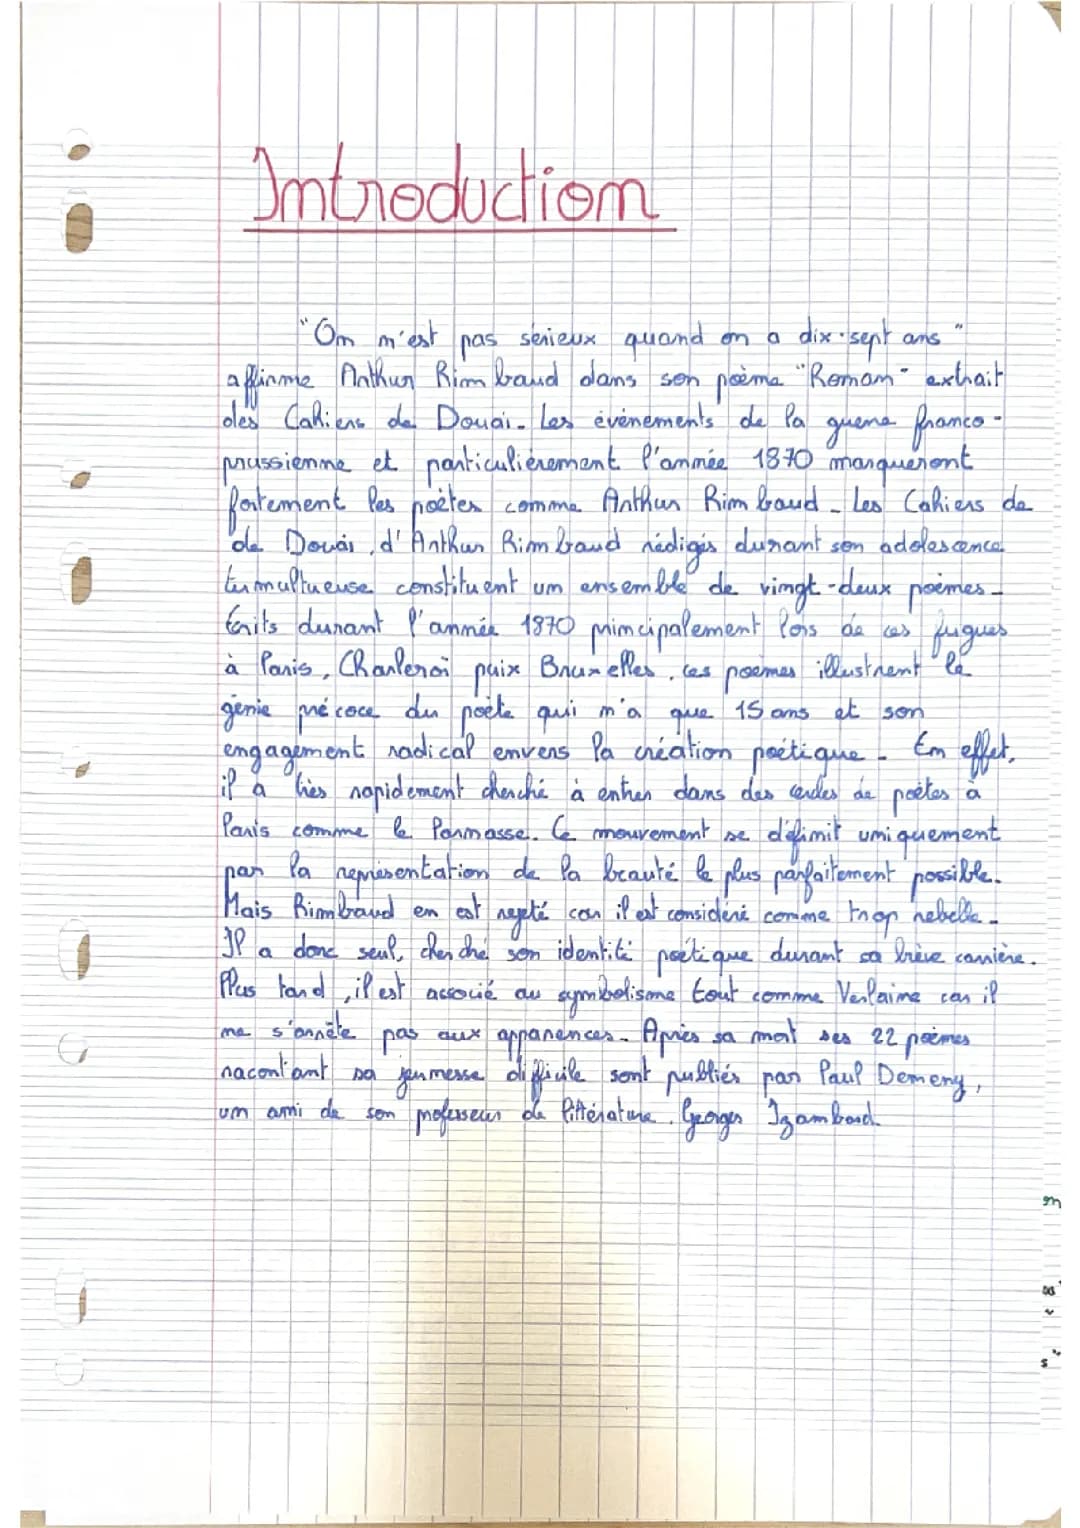 Introduction
"On n'est pas sérieux quand on a dix-sept ans"
affirme Arthur Rimbaud dans son poème "Roman" extrait
des Cahiers de Douai. Les événements de la guerre franco-
prussienne et particulièrement l'année 1870 marqueront
fortement les poètes comme Arthur Rimbaud. Les Cahiers de
de Douai, d'Arthur Rimbaud rédigés durant son adolescence
tumultueuse constituent un ensemble de vingt-deux poèmes.
Écrits durant l'année 1870 principalement lors de ces fugues
à Paris, Charleroi puix Bruxelles, ces poèmes illustrent le
génie précoce du poète qui n'a que 15 ans et son
engagement radical envers la création poétique. En effet,
il a très rapidement cherché à entrer dans des cercles de poètes à
Paris comme le Parnasse. Ce mouvement se définit uniquement
par la représentation de la beauté le plus parfaitement possible.
Mais Rimbaud en est rejeté car il est considéré comme trop rebelle.
Il a donc seul, cherché son identité poétique durant sa brève carrière.
Plus tard, il est associé au symbolisme tout comme Verlaine car il
ne s'arrête pas aux apparences. Après sa mort ses 22 poèmes
racontant sa jeunesse difficile sont publiés par Paul Demeny,
un ami de son professeur de littérature, Georges Izambard.